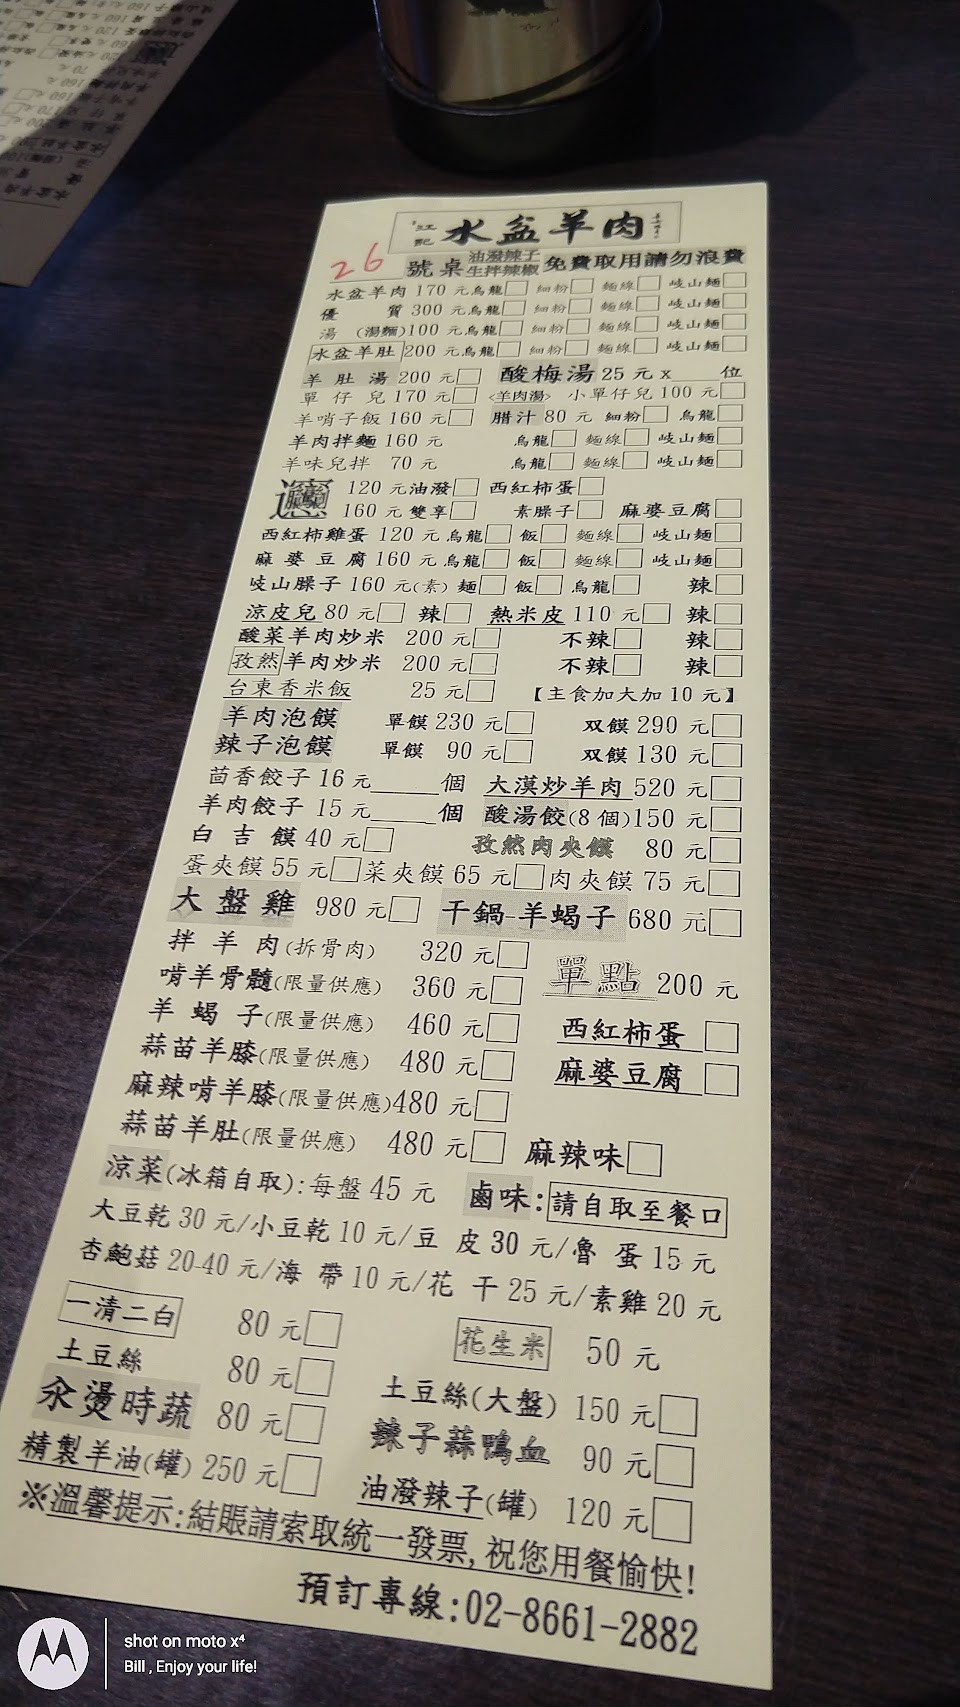 江記 水盆羊肉
26 號桌 油潑辣子 生拌辣椒 免費取用請勿浪費
水盆羊肉 170 元烏龍□ 細粉□ 麵線□ 岐山麵□
優質 300 元烏龍□ 細粉□ 麵線□ 岐山麵□
湯 (湯麵)100 元烏龍□ 細粉□ 麵線□ 岐山麵□
水盆羊肚 200 元烏龍□ 細粉□ 麵線□ 岐山麵□
羊肚湯 200 元□ 酸梅湯 25 元 x 位
單仔兒 170 元□ <羊肉湯> 小單仔兒 100 元□
羊哨子飯 160 元□ 腊汁 80 元 細粉□ 烏龍□
羊肉拌麵 160 元 烏龍□ 麵線□ 岐山麵□
羊味兒拌 70 元 烏龍□ 麵線□ 岐山麵□
120 元油潑□ 西紅柿蛋□
160 元 雙享□ 素臊子□ 麻婆豆腐□
西紅柿雞蛋 120 元 烏龍□ 飯□ 麵線□ 岐山麵□
麻婆豆腐 160 元 烏龍□ 飯□ 麵線□ 岐山麵□
岐山臊子 160 元(素) 麵□ 飯□ 烏龍□ 辣□
涼皮兒 80 元□ 辣□ 熱米皮 110 元□ 辣□
酸菜羊肉炒米 200 元□ 不辣□ 辣□
孜然羊肉炒米 200 元□ 不辣□ 辣□
台東香米飯 25 元□ 【主食加大加 10 元】
羊肉泡饃 單饃 230 元□ 双饃 290 元□
辣子泡饃 單饃 90 元□ 双饃 130 元□
茴香餃子 16 元______個 大漠炒羊肉 520 元□
羊肉餃子 15 元______個 酸湯餃(8 個)150 元□
白吉饃 40 元□ 孜然肉夾饃 80 元□
蛋夾饃 55 元□菜夾饃 65 元□肉夾饃 75 元□
大盤雞 980 元□ 干鍋-羊蝎子 680 元□
拌羊肉(拆骨肉) 320 元□ 單點 200 元
啃羊骨髓(限量供應) 360 元□
羊蝎子(限量供應) 460 元□ 西紅柿蛋□
蒜苗羊膝(限量供應) 480 元□ 麻婆豆腐□
麻辣啃羊膝(限量供應)480 元□
蒜苗羊肚(限量供應) 480 元□ 麻辣味□
涼菜(冰箱自取):每盤 45 元 鹵味:請自取至餐口
大豆乾 30 元/小豆乾 10 元/豆皮 30 元/魯蛋 15 元
杏鮑菇 20-40 元/海帶 10 元/花干 25 元/素雞 20 元
一清二白 80 元□ 花生米 50 元
土豆絲 80 元□ 土豆絲(大盤) 150 元□
汆燙時蔬 80 元□ 辣子蒜鴨血 90 元□
精製羊油(罐) 250 元□ 油潑辣子(罐) 120 元□
※溫馨提示:結賬請索取統一發票,祝您用餐愉快!
預訂專線:02-8661-2882
shot on moto x⁴
Bill , Enjoy your life!